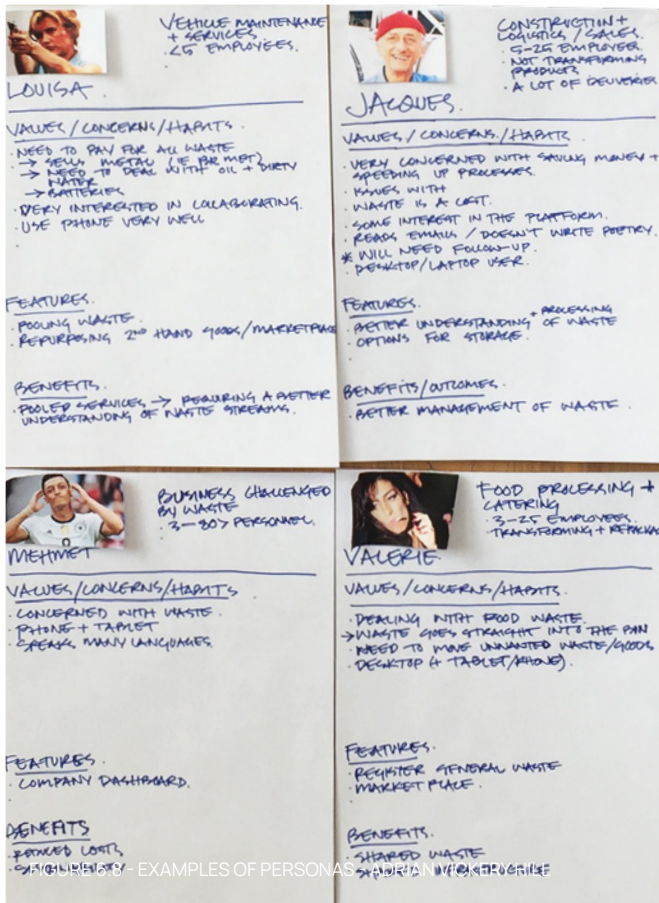 VEHICLE MAINTENANCE
+ SERVICES.
· <5 EMPLOYEES.
LOUISA.
VALUES/CONCERNS/HABITS.
· NEED TO PAY FOR ALL WASTE
→ SELLS METAL (IE BR MET)
→ NEED TO DEAL WITH OIL + DIRTY
WATER
→ BATTERIES
· VERY INTERESTED IN COLLABORATING.
· USE PHONE VERY WELL
FEATURES.
· POOLING WASTE.
· REPURPOSING 2ND HAND GOODS/MARKETPLACE
BENEFITS.
· POOLED SERVICES → REQUIRING A BETTER
UNDERSTANDING OF WASTE STREAMS.
CONSTRUCTION +
LOGISTICS / SALES.
· 5-25 EMPLOYEES.
· NOT TRANSFORMING
PRODUCTS
· A LOT OF DELIVERIES
JACQUES.
VALUES / CONCERNS / HABITS
· VERY CONCERNED WITH SAVING MONEY +
SPEEDING UP PROCESSES.
· ISSUES WITH
· WASTE IS A COST.
· SOME INTEREST IN THE PLATFORM.
· READS EMAILS / DOESN'T WRITE POETRY.
* WILL NEED FOLLOW-UP.
· DESKTOP/LAPTOP USER.
FEATURES.
+ PROCESSING
· BETTER UNDERSTANDING OF WASTE
· OPTIONS FOR STORAGE.
BENEFITS/OUTCOMES.
· BETTER MANAGEMENT OF WASTE.
BUSINESS CHALLENGED
BY WASTE
· 3-80> PERSONNEL.
MEHMET
VALUES/CONCERNS/HABITS
· CONCERNED WITH WASTE.
· PHONE + TABLET
· SPEAKS MANY LANGUAGES
FEATURES.
· COMPANY DASHBOARD.
BENEFITS
· REDUCED COSTS
FOOD PROCESSING +
CATERING
· 3-25 EMPLOYEES.
· TRANSFORMING +
VALERIE.
VALUES/CONCERNS/HABITS.
· DEALING WITH FOOD WASTE.
→ WASTE GOES STRAIGHT INTO THE BIN
· NEED TO MOVE UNWANTED WASTE/GOODS
· DESKTOP (+ TABLET/PHONE).
FEATURES.
· REGISTER GENERAL WASTE
· MARKET PLACE.
BENEFITS.
· SHARED WASTE
FIGURE 6.8 - EXAMPLES OF PERSONAS - ADRIAN VICKERY HILL